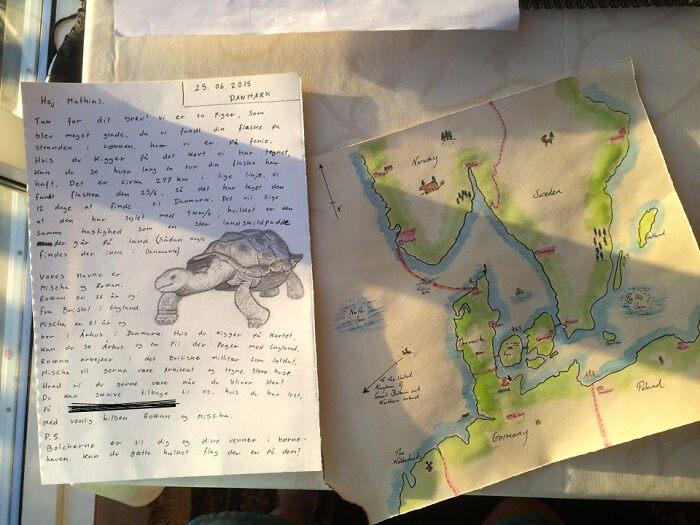 25.06.2015
DANMARK
Hej Mathias.
Tak for dit brev! Vi er to Piger, som
blev meget glade, da vi fandt din flaske på
stranden i Løkken, hvor vi er på ferie.
Hvis du kigger på det kort vi har tegnet,
kan du se hvor lang en tur din flaske har
haft. Det er cirka 277 km i lige linje. Vi
fandt flasken den 25/6, så det har taget den
12 dage at finde til Danmark. Det vil sige
at den har sejlet med 1 km/t, hvilket er den
samme hastighed som en stor landskildpadde
der går på land. (Sådan nogle
findes der ikke i Danmark)
Vores navne er
Mischa og Rowan.
Rowan er 26 år og
fra Bristol i England.
Mischa er 21 år og
bor i Århus i Danmark. Hvis du kigger på kortet,
kan du se Århus og en Pil der Peger mod England.
Rowan arbejder i det Britiske militær som soldat.
Mischa vil gerne være Arkitekt og tegne store huse.
Hvad vil du gerne være når du bliver stor?
Du kan skrive tilbage til os, hvis du har lyst,
På :
Med venlig hilsen Rowan og Mischa.
P.S.
Bolcherne er til dig og dine venner i børne-
haven. Kan du gætte hvilket flag der er på dem?
N
Norway
Sweden
North
Sea
Denmark
To the United
Kingdom of
Great Britain and
Northern Ireland
The
Netherlands
Germany
Poland